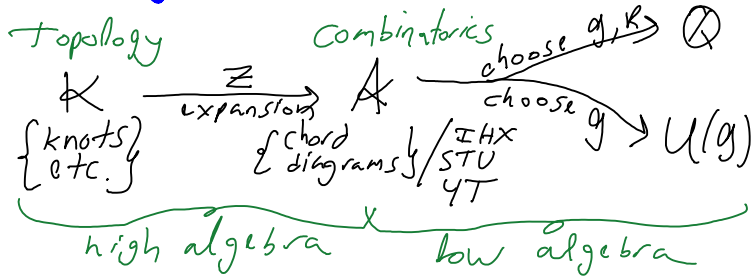 Topology
Combinatorics
choose g, R
Q
K
Z
expansion
A
choose g
U(g)
{knots etc.}
{chord diagrams} / IHX STU 4T
high algebra
low algebra